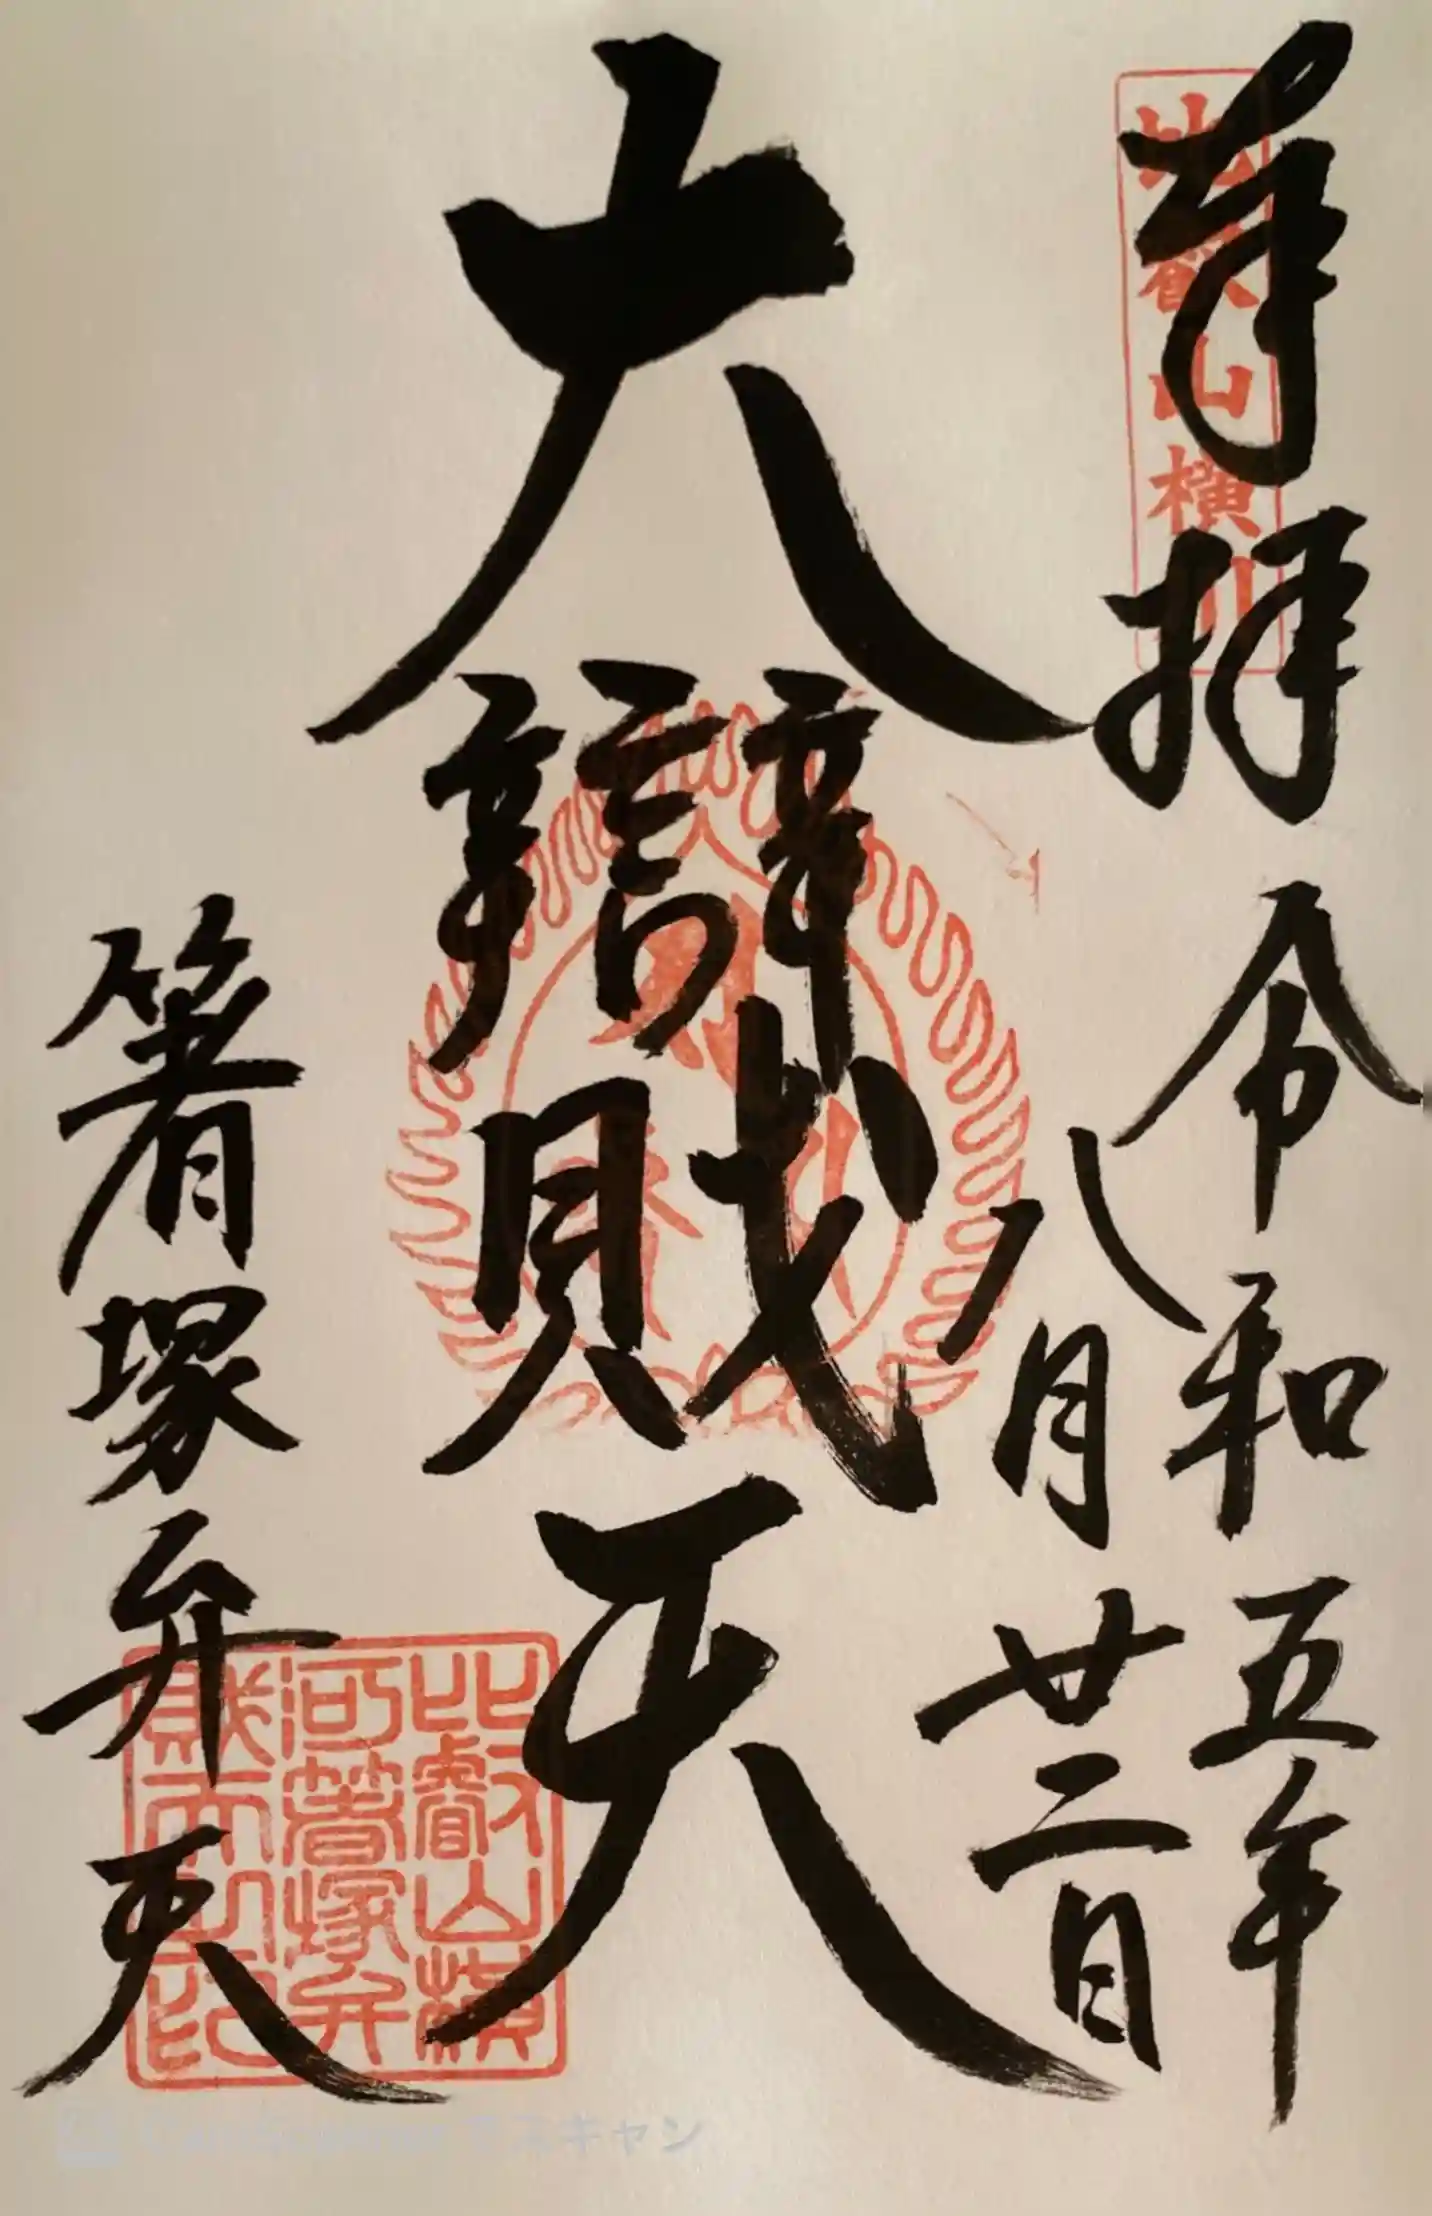 奉拝
比叡山横川
令和五年
八月廿二日
大辯財天
箸塚弁天
比叡山横
河箸塚弁
財天
印
スキャン